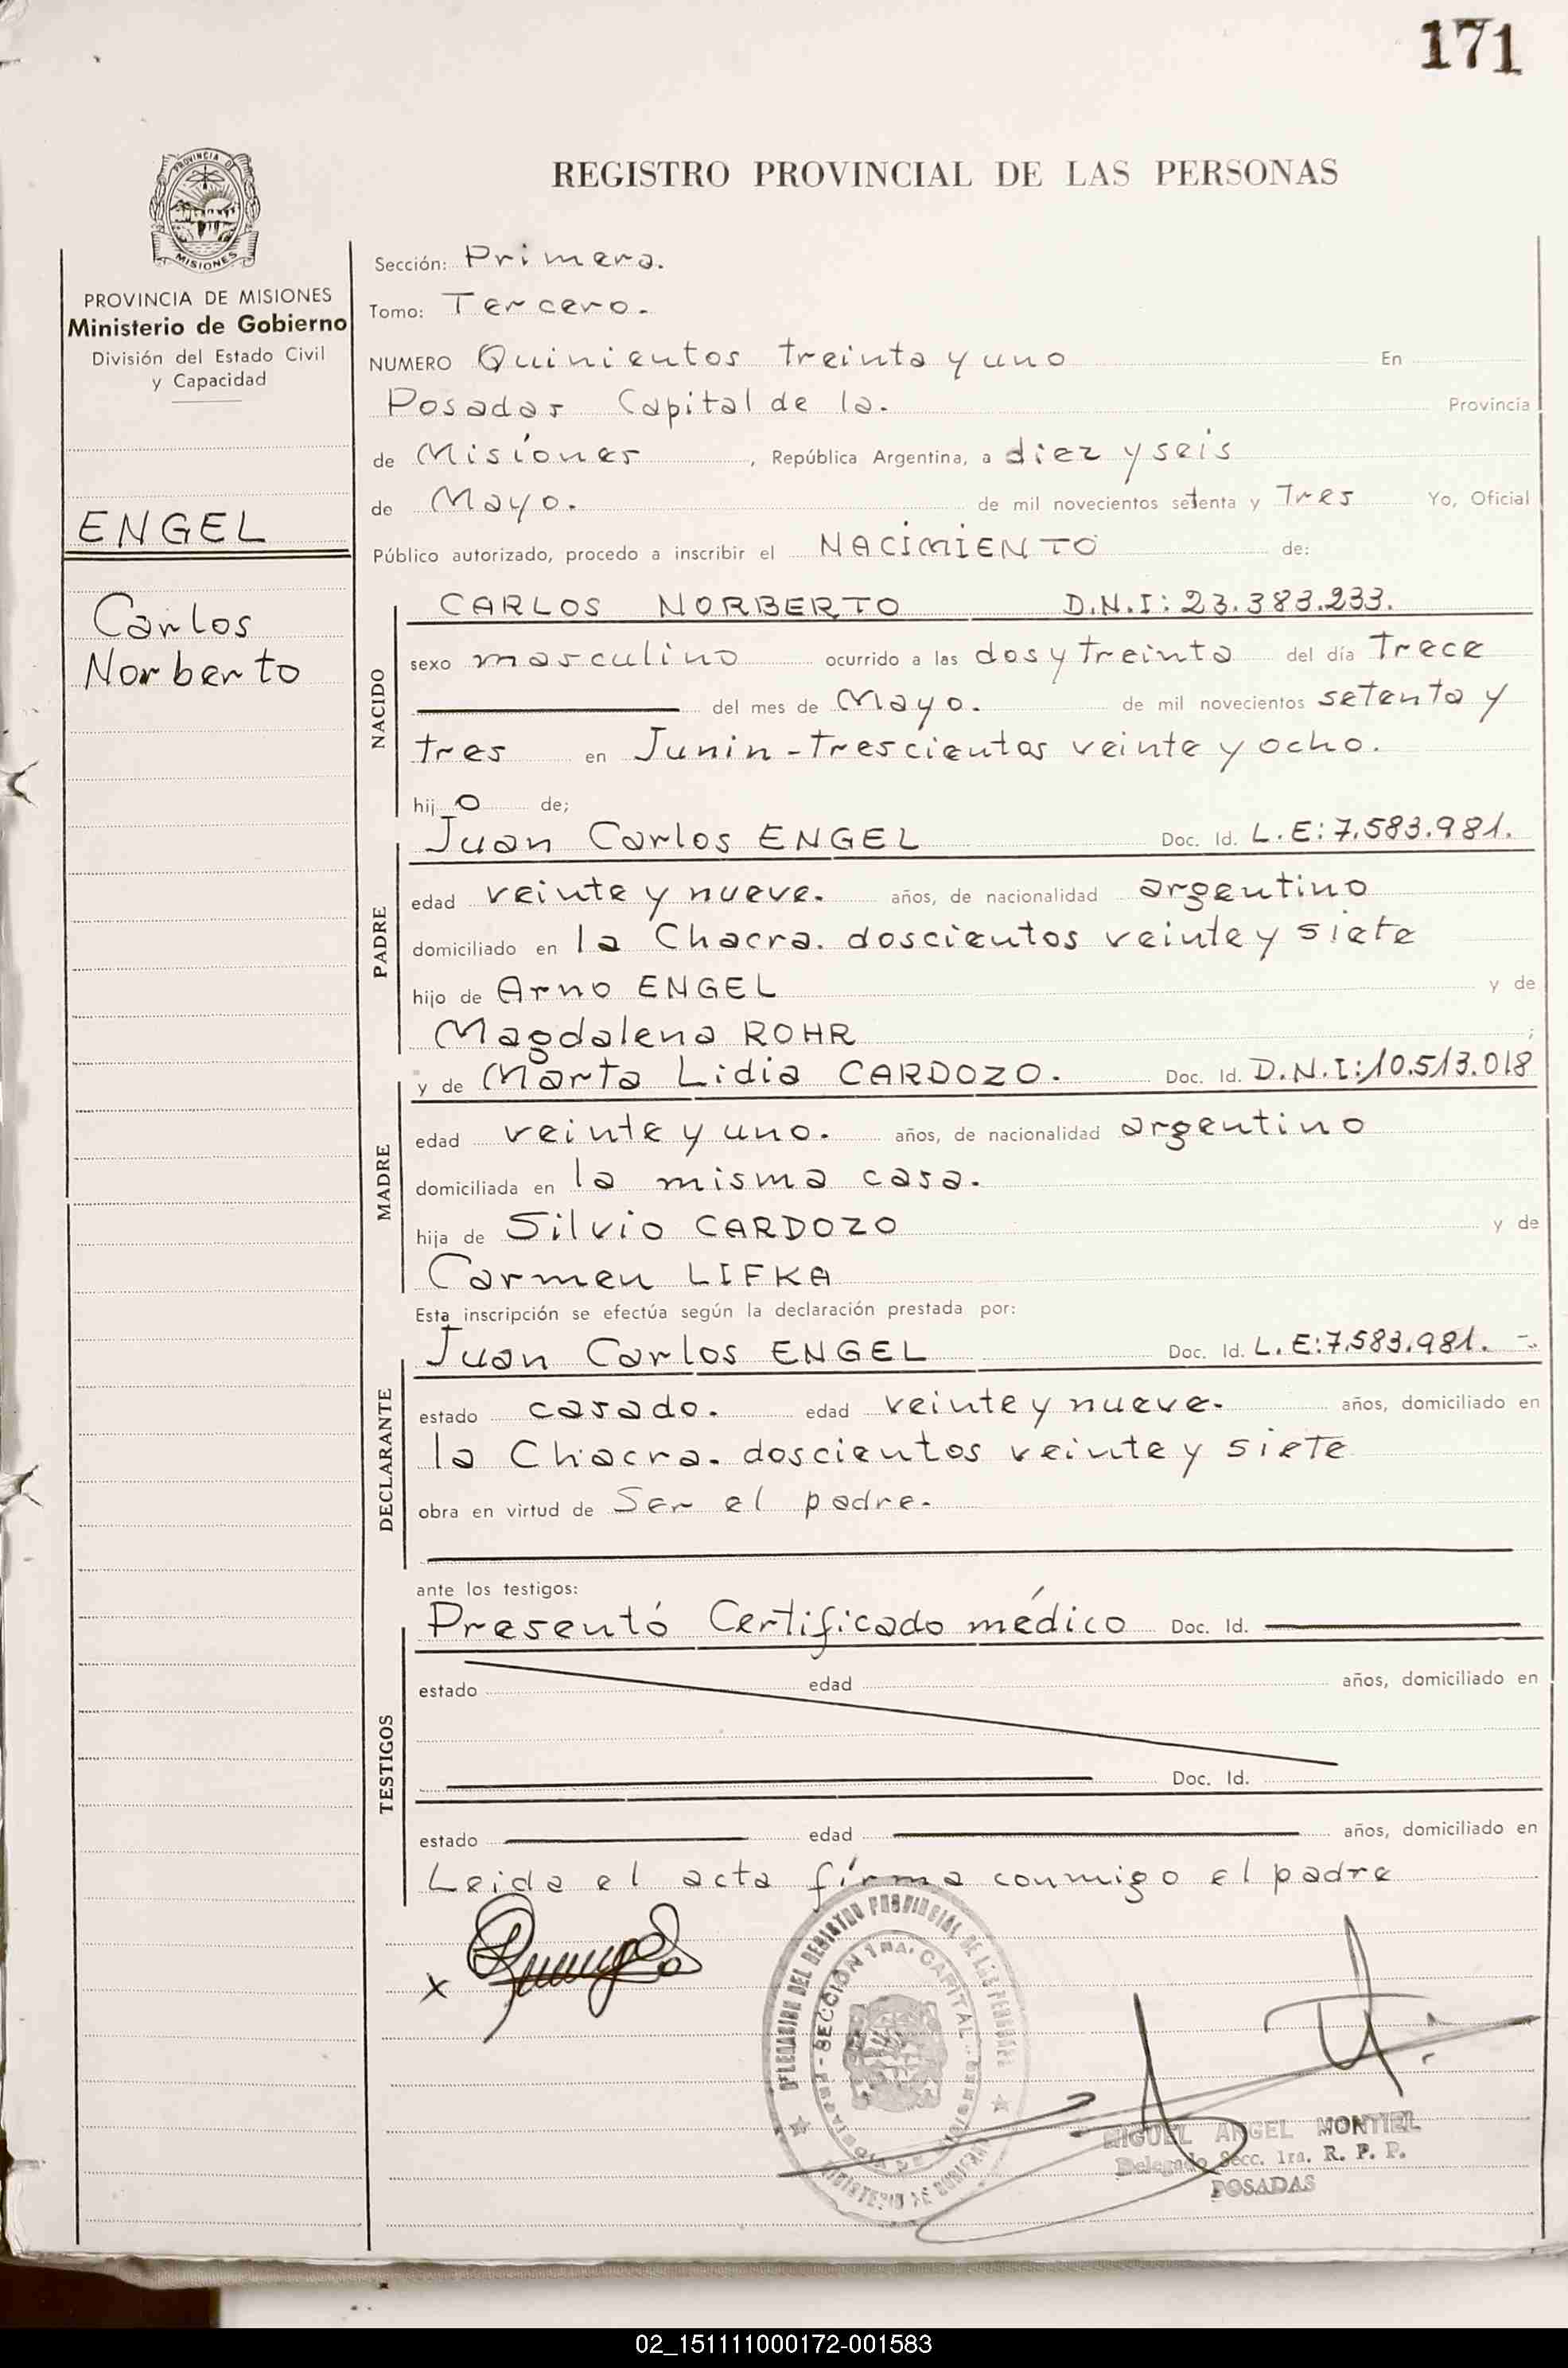 171
PROVINCIA DE
MISIONES
REGISTRO PROVINCIAL DE LAS PERSONAS
PROVINCIA DE MISIONES
Ministerio de Gobierno
División del Estado Civil
y Capacidad
ENGEL
Carlos
Norberto
Sección: Primera.
Tomo: Tercero.
NUMERO Quinientos treinta y uno En
Posadas Capital de la. Provincia
de Misiones, República Argentina, a diez y seis
de Mayo. de mil novecientos setenta y Tres Yo, Oficial
Público autorizado, procedo a inscribir el NACIMIENTO de:
NACIDO
CARLOS NORBERTO D.N.I: 23.383.233.
sexo masculino ocurrido a las dos y treinta del día Trece
del mes de Mayo. de mil novecientos setenta y
tres en Junin - trescientos veinte y ocho.
hij o de;
PADRE
Juan Carlos ENGEL Doc. Id. L.E: 7.583.981.
edad veinte y nueve. años, de nacionalidad argentino
domiciliado en la Chacra. doscientos veinte y siete
hijo de Arno ENGEL y de
Magdalena ROHR ;
MADRE
y de Marta Lidia CARDOZO. Doc. Id. D.N.I: 10.513.018
edad veinte y uno. años, de nacionalidad argentino
domiciliada en la misma casa.
hija de Silvio CARDOZO y de
Carmen LIFKA
Esta inscripción se efectúa según la declaración prestada por:
DECLARANTE
Juan Carlos ENGEL Doc. Id. L.E: 7.583.981. -.
estado casado. edad veinte y nueve. años, domiciliado en
la Chacra. doscientos veinte y siete
obra en virtud de Ser el padre.
ante los testigos:
TESTIGOS
Presentó Certificado médico Doc. Id.
estado edad años, domiciliado en
Doc. Id.
estado edad años, domiciliado en
Leida el acta fírma conmigo el padre
x
DELEGACION DEL REGISTRO PROVINCIAL DE LAS PERSONAS
SECCION 1RA. CAPITAL
MINISTERIO DE GOBIERNO
MIGUEL ANGEL MONTIEL
Delegado Secc. 1ra. R. P. P.
POSADAS
02_151111000172-001583